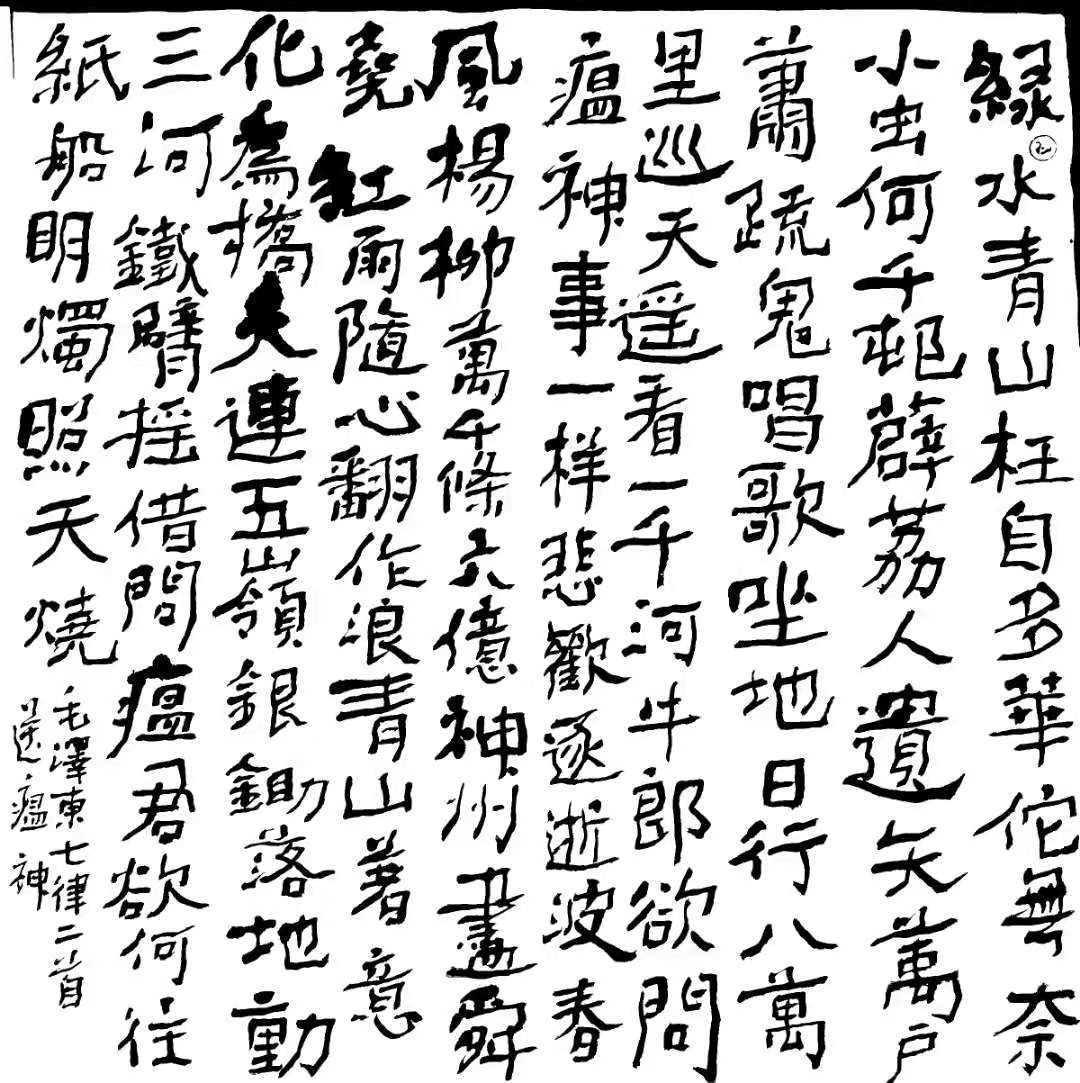 綠水青山枉自多華佗無奈
小虫何千邨薜荔人遺矢萬户
蕭疏鬼唱歌坐地日行八萬
里巡天遥看一千河牛郎欲問
瘟神事一样悲歡逐逝波春
風楊柳萬千條六億神州盡舜
堯紅雨隨心翻作浪青山著意
化為橋天連五嶺銀鋤落地動
三河鐵臂摇借問瘟君欲何往
紙船明燭照天燒
毛澤東七律二首
送瘟神